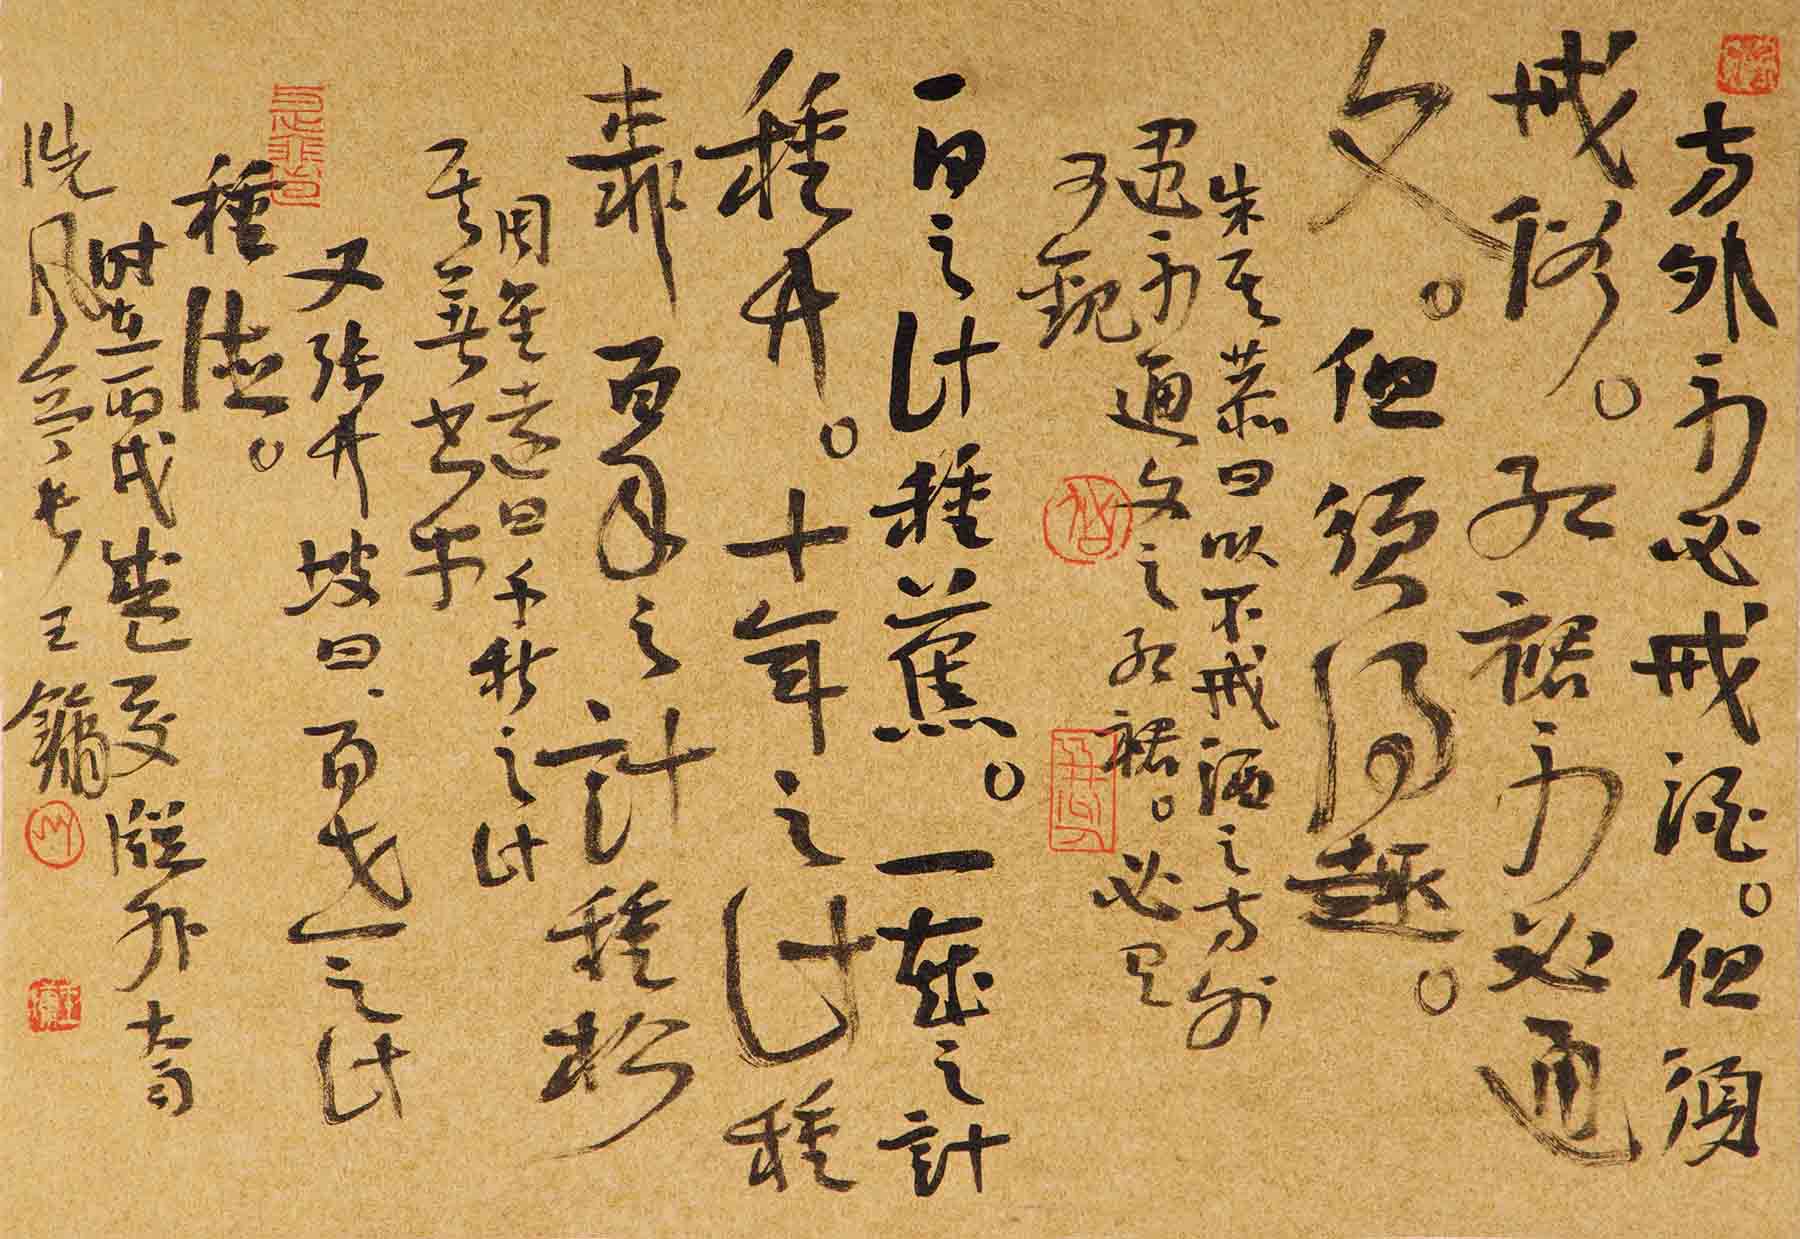 方外不必戒酒。但須
戒俗。紅裙不必通
文。但須得趣。
朱其恭曰以不戒酒之方外
遇不通文之紅裙。必有
可觀
一日之计種蕉。一歲之計
種竹。十年之计種
桺百年之計種松
周星遠曰千秋之计
其著書乎
又張竹坡曰、百世之计
種德。
时在丙戌
王鏞